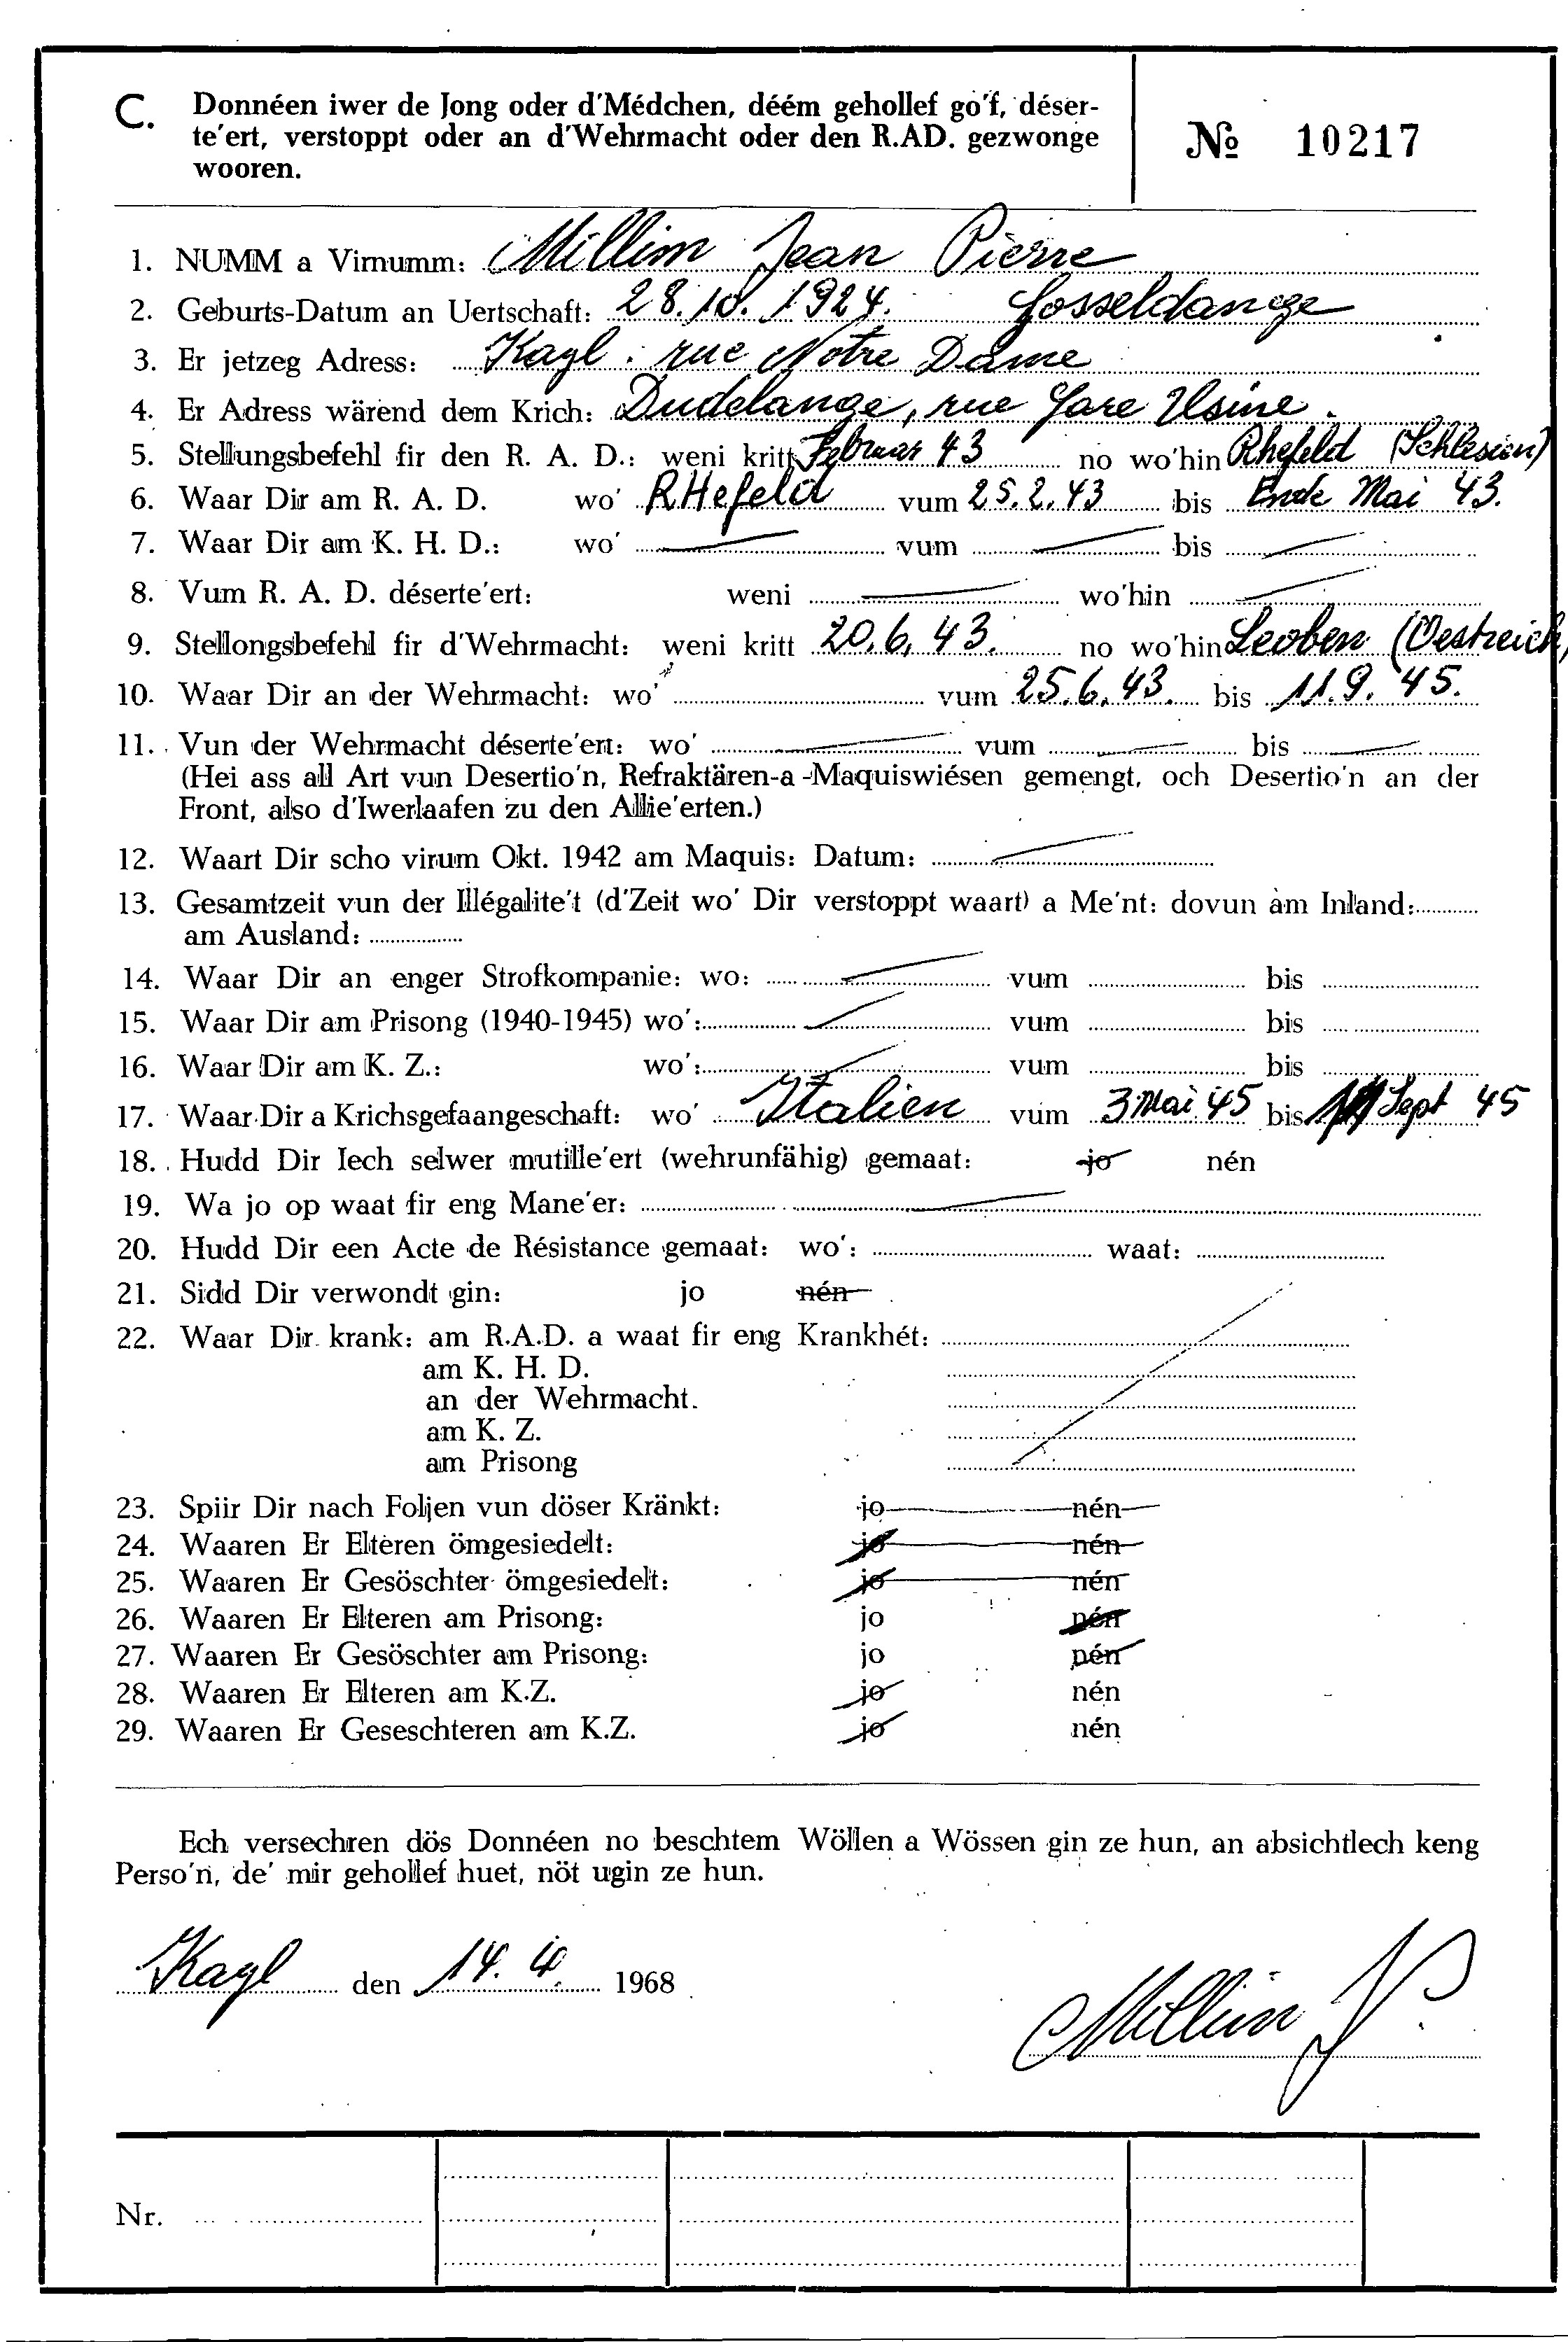 C. Donnéen iwer de Jong oder d'Médchen, déém gehollef go'f, déser-
te'ert, verstoppt oder an d'Wehrmacht oder den R.AD. gezwonge
wooren.
№ 10217
1. NUMM a Virnumm: Millim Jean Pierre
2. Geburts-Datum an Uertschaft: 28.10.1924. Gosseldange
3. Er jetzeg Adress: Kayl. rue Notre Dame
4. Er Adress wärend dem Krich: Dudelange, rue Gare Usine.
5. Stellungsbefehl fir den R. A. D.: weni kritt Februar 43 no wo'hin Rhefeld (Schlesien)
6. Waar Dir am R. A. D. wo' RHefeld vum 25.2.43 bis Ende Mai 43.
7. Waar Dir am K. H. D.: wo' vum bis
8. Vum R. A. D. déserte'ert: weni wo'hin
9. Stellongsbefehl fir d'Wehrmacht: weni kritt 20.6.43. no wo'hin Leoben (Oestreich)
10. Waar Dir an der Wehrmacht: wo' vum 25.6.43. bis 11.9.45.
11. Vun der Wehrmacht déserte'ert: wo' vum bis
(Hei ass all Art vun Desertio'n, Refraktären-a-Maquiswiésen gemengt, och Desertio'n an der
Front, also d'Iwerlaafen zu den Allie'erten.)
12. Waart Dir scho virum Okt. 1942 am Maquis: Datum:
13. Gesamtzeit vun der Illégalite't (d'Zeit wo' Dir verstoppt waart) a Me'nt: dovun am Inland:
am Ausland:
14. Waar Dir an enger Strofkompanie: wo: vum bis
15. Waar Dir am Prisong (1940-1945) wo': vum bis
16. Waar Dir am K. Z.: wo': vum bis
17. Waar Dir a Krichsgefaangeschaft: wo' Italien vum 3 Mai 45 bis 11 Sept 45
18. Hudd Dir Iech selwer mutille'ert (wehrunfähig) gemaat: jo nén
19. Wa jo op waat fir eng Mane'er:
20. Hudd Dir een Acte de Résistance gemaat: wo': waat:
21. Sidd Dir verwondt gin: jo nén
22. Waar Dir krank: am R.A.D. a waat fir eng Krankhét:
am K. H. D.
an der Wehrmacht.
am K. Z.
am Prisong
23. Spiir Dir nach Foljen vun döser Kränkt: jo nén
24. Waaren Er Elteren ömgesiedelt: jo nén
25. Waaren Er Gesöschter ömgesiedelt: jo nén
26. Waaren Er Elteren am Prisong: jo nén
27. Waaren Er Gesöschter am Prisong: jo nén
28. Waaren Er Elteren am K.Z. jo nén
29. Waaren Er Geseschteren am K.Z. jo nén
Ech versechren dös Donnéen no beschtem Wöllen a Wössen gin ze hun, an absichtlech keng
Perso'n, de' mir gehollef huet, nöt ugin ze hun.
Kayl den 14. 4. 1968
Millim J.P.
Nr.